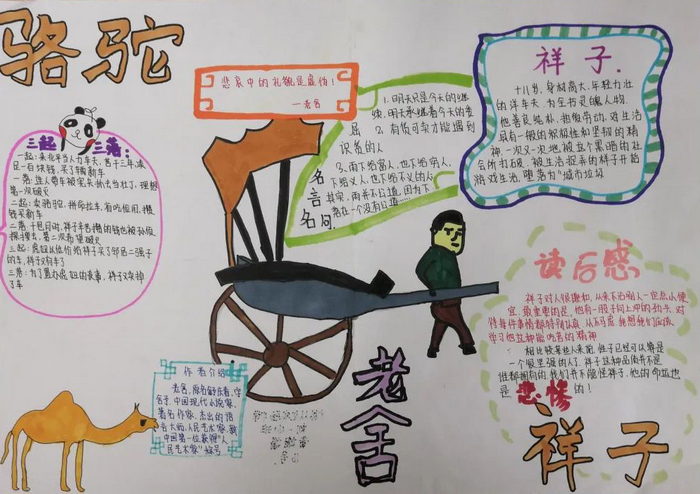 骆驼
悲哀中的礼貌是虚伪!
—老舍
三起三落:
一起:来北平当人力车夫,苦干三年,凑
足一百块钱,买了辆新车
一落:连人带车被宪兵抓去当壮丁,理想
第一次破灭
二起:卖骆驼,拼命拉车,省吃俭用,攒
钱买新车
二落:干包月时,祥子辛苦攒的钱也被孙侦
探搜去,第二次希望破灭
三起:虎妞以低价给祥子买了邻居二强子
的车,祥子又有车了
三落:为了置办虎妞的丧事,祥子又卖掉
了车
名言名句
1.明天只是今天的继
续,明天承继着今天的委
屈
2.有你可买才能遇到
识货的人
3.雨下给富人,也下给穷人,
下给义人,也下给不义的人
其实,雨并不公道,因为下
落在一个没有公道
祥子.
十八岁,身材高大、年轻力壮
的洋车夫,为全书灵魂人物.
他善良纯朴,热爱劳动,对生活
具有一般的积极性和坚韧的精
神,一次又一次地被这个黑暗的社
会所打破,被生活捉弄的祥子开始
游戏生活,堕落为"城市垃圾
读后感
祥子对人很谦和,从来不占别人一些点儿便
宜,最重要的是,他有一股子向上冲的劲头,对
待每件事情都特别认真,从不马虎,我想我们应该
学习他这种能吃苦的精神
相比较某些人来说,祥子已经可以算是
一个很坚强的人了,祥子这种品质并不是
谁都拥有的,我们并不能怪祥子,他的命运也
是悲惨的!
作者介绍
老舍,原名舒庆春,字
舍予,中国现代小说家、
著名作家,杰出的语
言大师、人民艺术家,新
中国第一位获得"人
民艺术家"称号
老舍
祥子